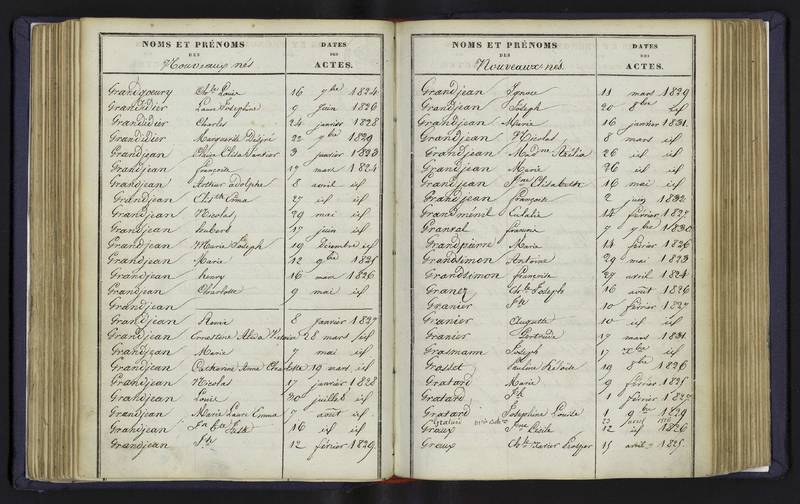 NOMS ET PRÉNOMS
DES
Nouveaux nés
DATES
DES
ACTES.
Grandgoeury Ch.les Louis 16 7bre 1824
Grandidier Laure Joséphine 9 Juin 1826
Grandidier Charles 24 janvier 1828
Grandidier Marguerite Désiré 22 9bre 1829
Grandjean 3 janvier 1823
Grandjean françois 17 mars 1824
Grandjean Arthur adolphe 8 avril id
Grandjean Elis.th Emma 27 id id
Grandjean Nicolas 29 mai id
Grandjean hubert 17 juin id
Grandjean Marie Joseph 19 Décembre id
Grandjean Marie 12 9bre 1825
Grandjean henry 16 mars 1826
Grandjean Charlotte 9 mai id
Grandjean
Grandjean 8 janvier 1827
Grandjean Ernestine 28 mars id
Grandjean Marie 7 mai id
Grandjean Catharine Anne Charlotte 19 mars id
Grandjean Nicolas 17 janvier 1828
Grandjean Louis 30 juillet id
Grandjean Marie Laure Emma 7 août id
Grandjean 16 id id
Grandjean 12 février 1829
NOMS ET PRÉNOMS
DES
Nouveaux nés.
DATES
DES
ACTES.
Grandjean Ignace 11 mars 1829
Grandjean Joseph 20 8bre id
Grandjean Marie 16 janvier 1831
Grandjean Nicolas 8 mars id
Grandjean 26 id id
Grandjean Marie 26 id id
Grandjean Elisabeth 16 mai id
Grandjean françois 2 juin 1832
Grandménil Eulalie 14 février 1827
Granval 7 7bre 1830
Grandpierre Marie 14 février 1826
Grandsimon Antoine 29 mai 1823
Grandsimon françois 27 avril 1824
Graney Ch.les Joseph 16 août 1826
Granier 10 février 1827
Granier Auguste 10 id id
Granier Gertrude 17 mars 1831
Grasmann Joseph 17 Xbre id
Grasset Pauline 19 8bre 1826
Gratard Marie 9 février 1825
Gratard 1 février 1827
Gratard Joséphine Louise 1 9bre 1829
Graux Cécile 12 id 1826
Graux Ch.les Xavier 15 avril 1825.